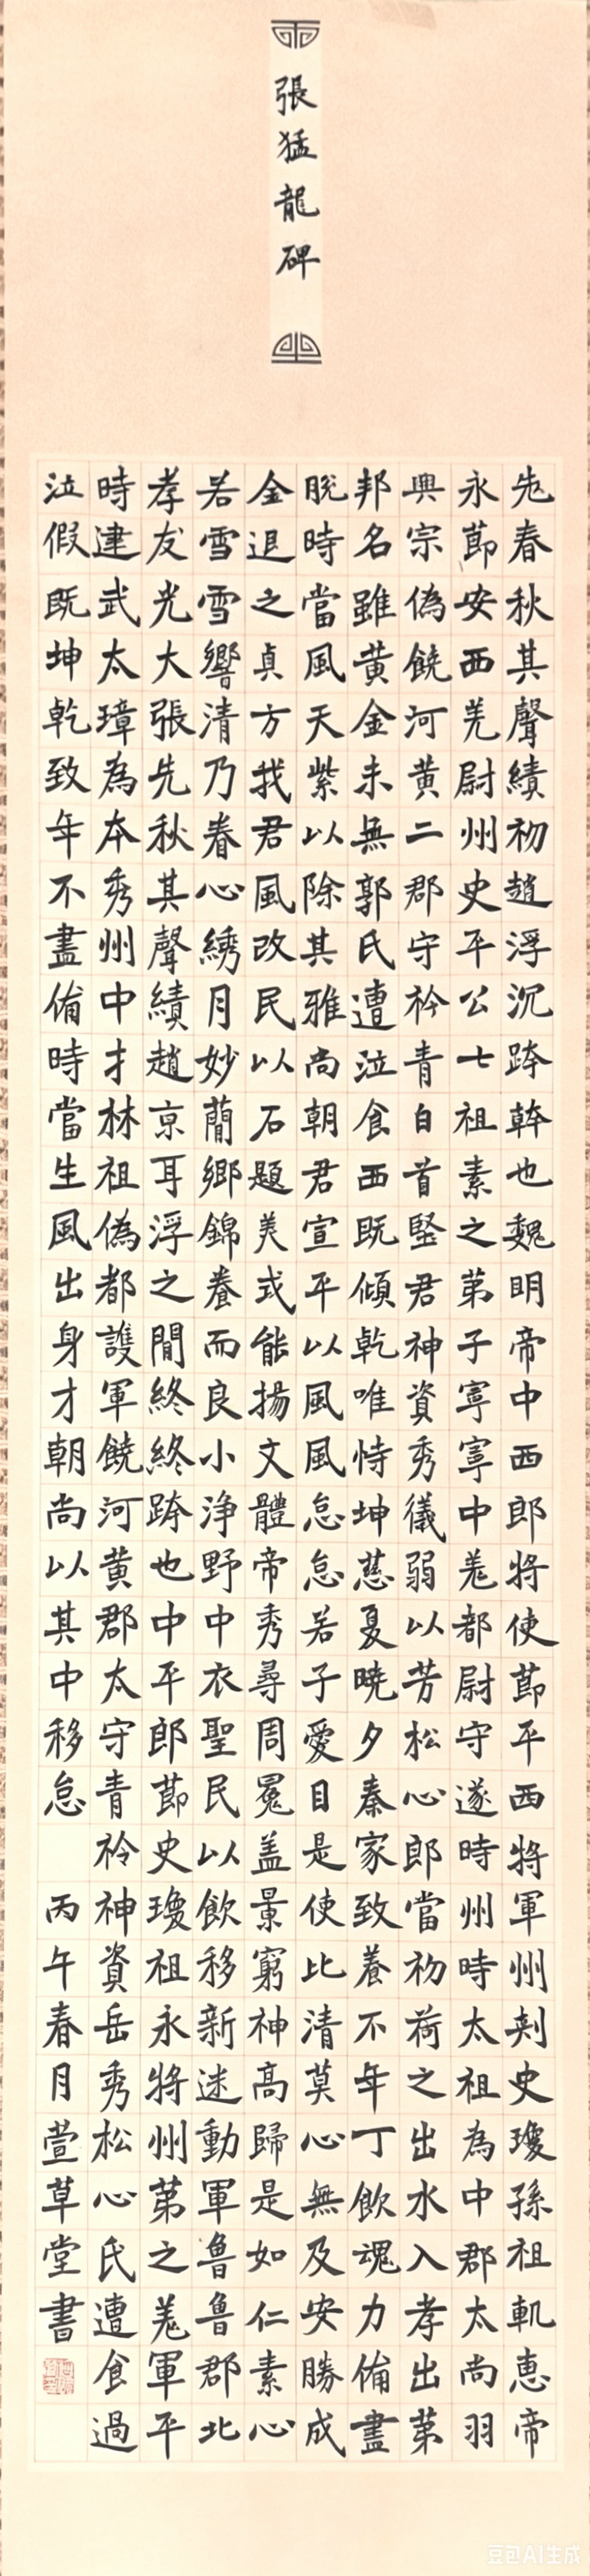 張猛龍碑
先春秋其聲績初趙浮沉跨幹也魏明帝中西郎將使節平西將軍州刺史瓊孫祖軌惠帝
永節安西羌尉州史平公七祖素之第子寧寧中羌都尉守遂時州時太祖為中郡太尚羽
興宗偽饒河黃二郡守衿青自首堅君神資秀儀弱以芳松心郎當初荷之出水入孝出第
邦名雖黃金未無郭氏遭泣食西既傾乾唯恃坤慈夏曉夕奏家致養不年丁飲魂力備盡
脫時當風天紫以除其雅尚朝君宣平以風風怠怠若子愛日是使比清莫心無及安勝成
金退之貞方我君風改民以石題美式能揚文體帝秀尋周冕蓋景窮神高歸是如仁素心
若雪雪響清乃眷心綉月妙蘭鄉錦養而良小淨野中衣聖民以飲移新迷動軍魯魯郡北
孝友光大張先秋其聲績趙京耳浮之間終終跨也中平郎節史瓊祖永將州第之羌軍平
時建武太璋為本秀州中才林祖偽都護軍饒河黃郡太守青衿神資岳秀松心氏遭食過
泣假既坤乾致年不盡備時當生風出身才朝尚以其中移怠 丙午春月萱草堂書
豆包AI生成